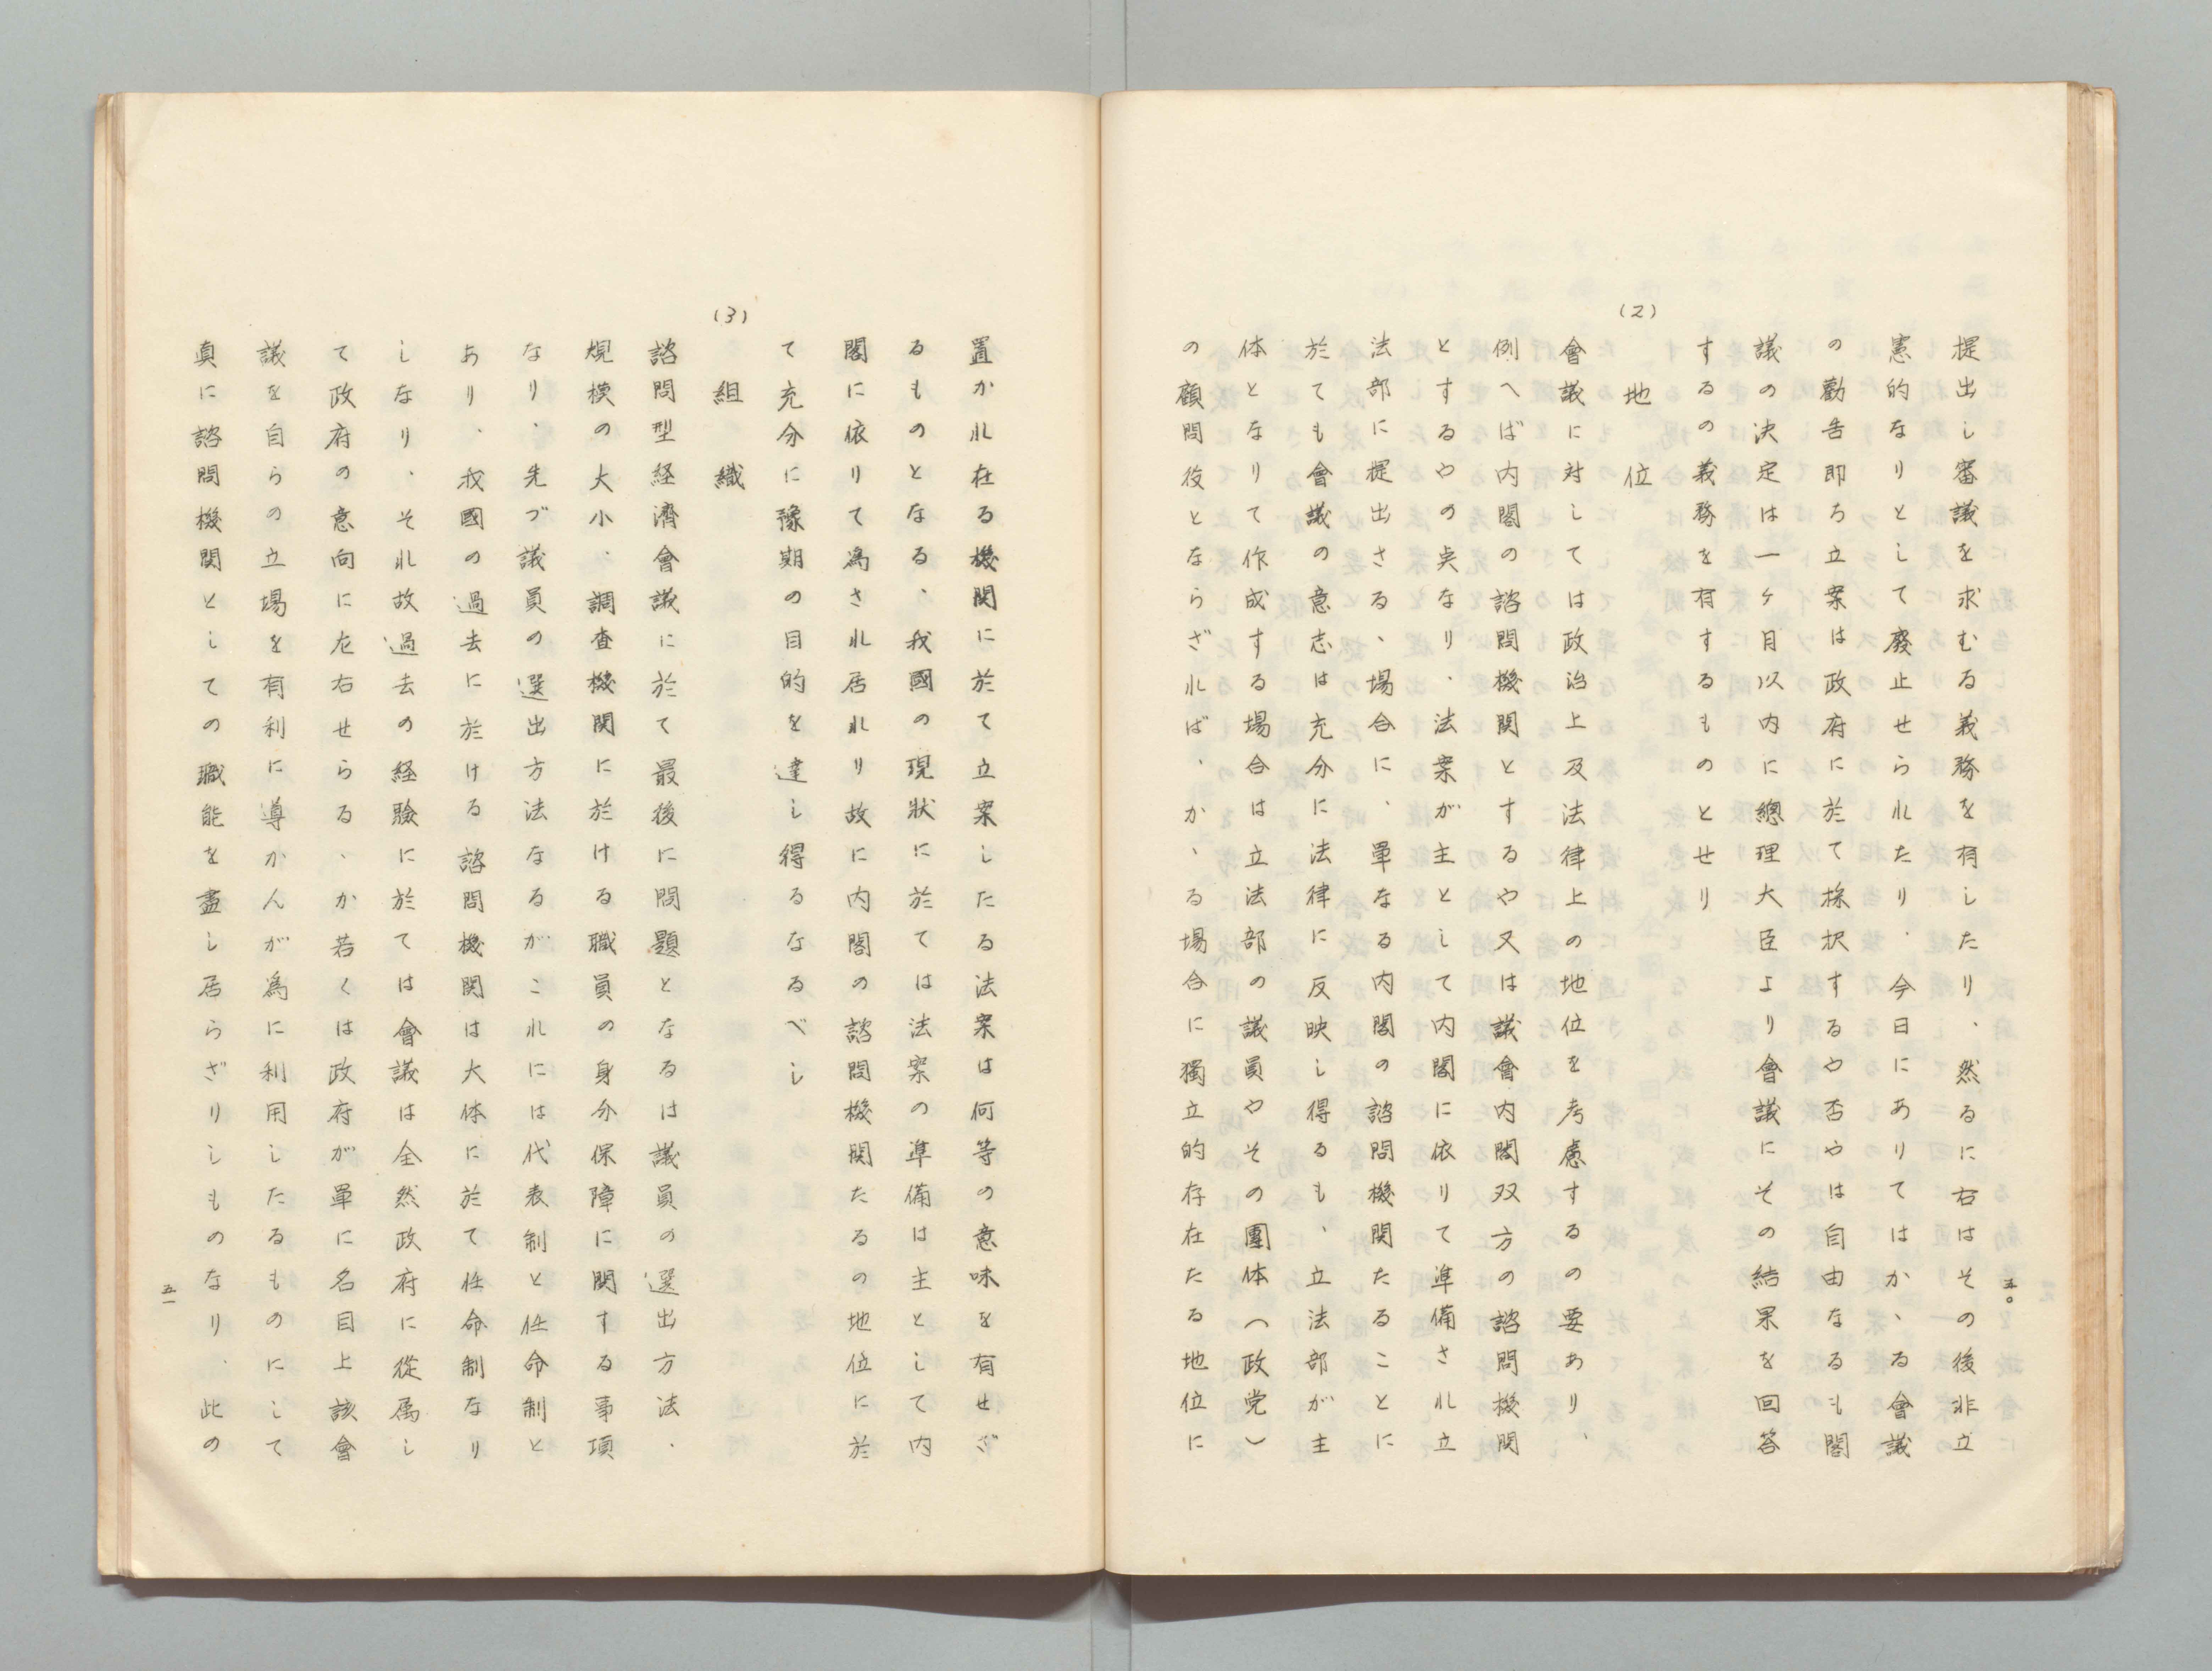 提出し審議を求むる義務を有したり、然るに右はその後非立
憲的なりとして廢止せられたり、今日にありてはか、る會議
の勸告即ち立案は政府に於て採択するや否やは自由なるも閣
議の決定は一ヶ月以内に總理大臣より會議にその結果を回答
するの義務を有するものとせり
(2) 地位
會議に対しては政治上及法律上の地位を考慮するの要あり、
例へば内閣の諮問機関とするや又は議會内閣双方の諮問機関
とするやの点なり、法案が主として内閣に依りて準備され立
法部に提出さる、場合に、單なる内閣の諮問機関たることに
於ても會議の意志は充分に法律に反映し得るも、立法部が主
体となりて作成する場合は立法部の議員やその團体(政党)
の顧問役とならざれば、か、る場合に獨立的存在たる地位に
五〇
置かれ在る機関に於て立案したる法案は何等の意味を有せざ
るものとなる、我國の現狀に於ては法案の準備は主として内
閣に依りて為され居れり故に内閣の諮問機関たるの地位に於
て充分に豫期の目的を達し得るなるべし
(3) 組織
諮問型経濟會議に於て最後に問題となるは議員の選出方法、
規模の大小、調査機関に於ける職員の身分保障に関する事項
なり、先づ議員の選出方法なるがこれには代表制と任命制と
あり、我國の過去に於ける諮問機関は大体に於て任命制なり
しなり、それ故過去の経驗に於ては會議は全然政府に從属し
て政府の意向に左右せらる、か若くは政府が單に名目上該會
議を自らの立場を有利に導かんが為に利用したるものにして
真に諮問機関としての職能を盡し居らざりしものなり、此の
五一